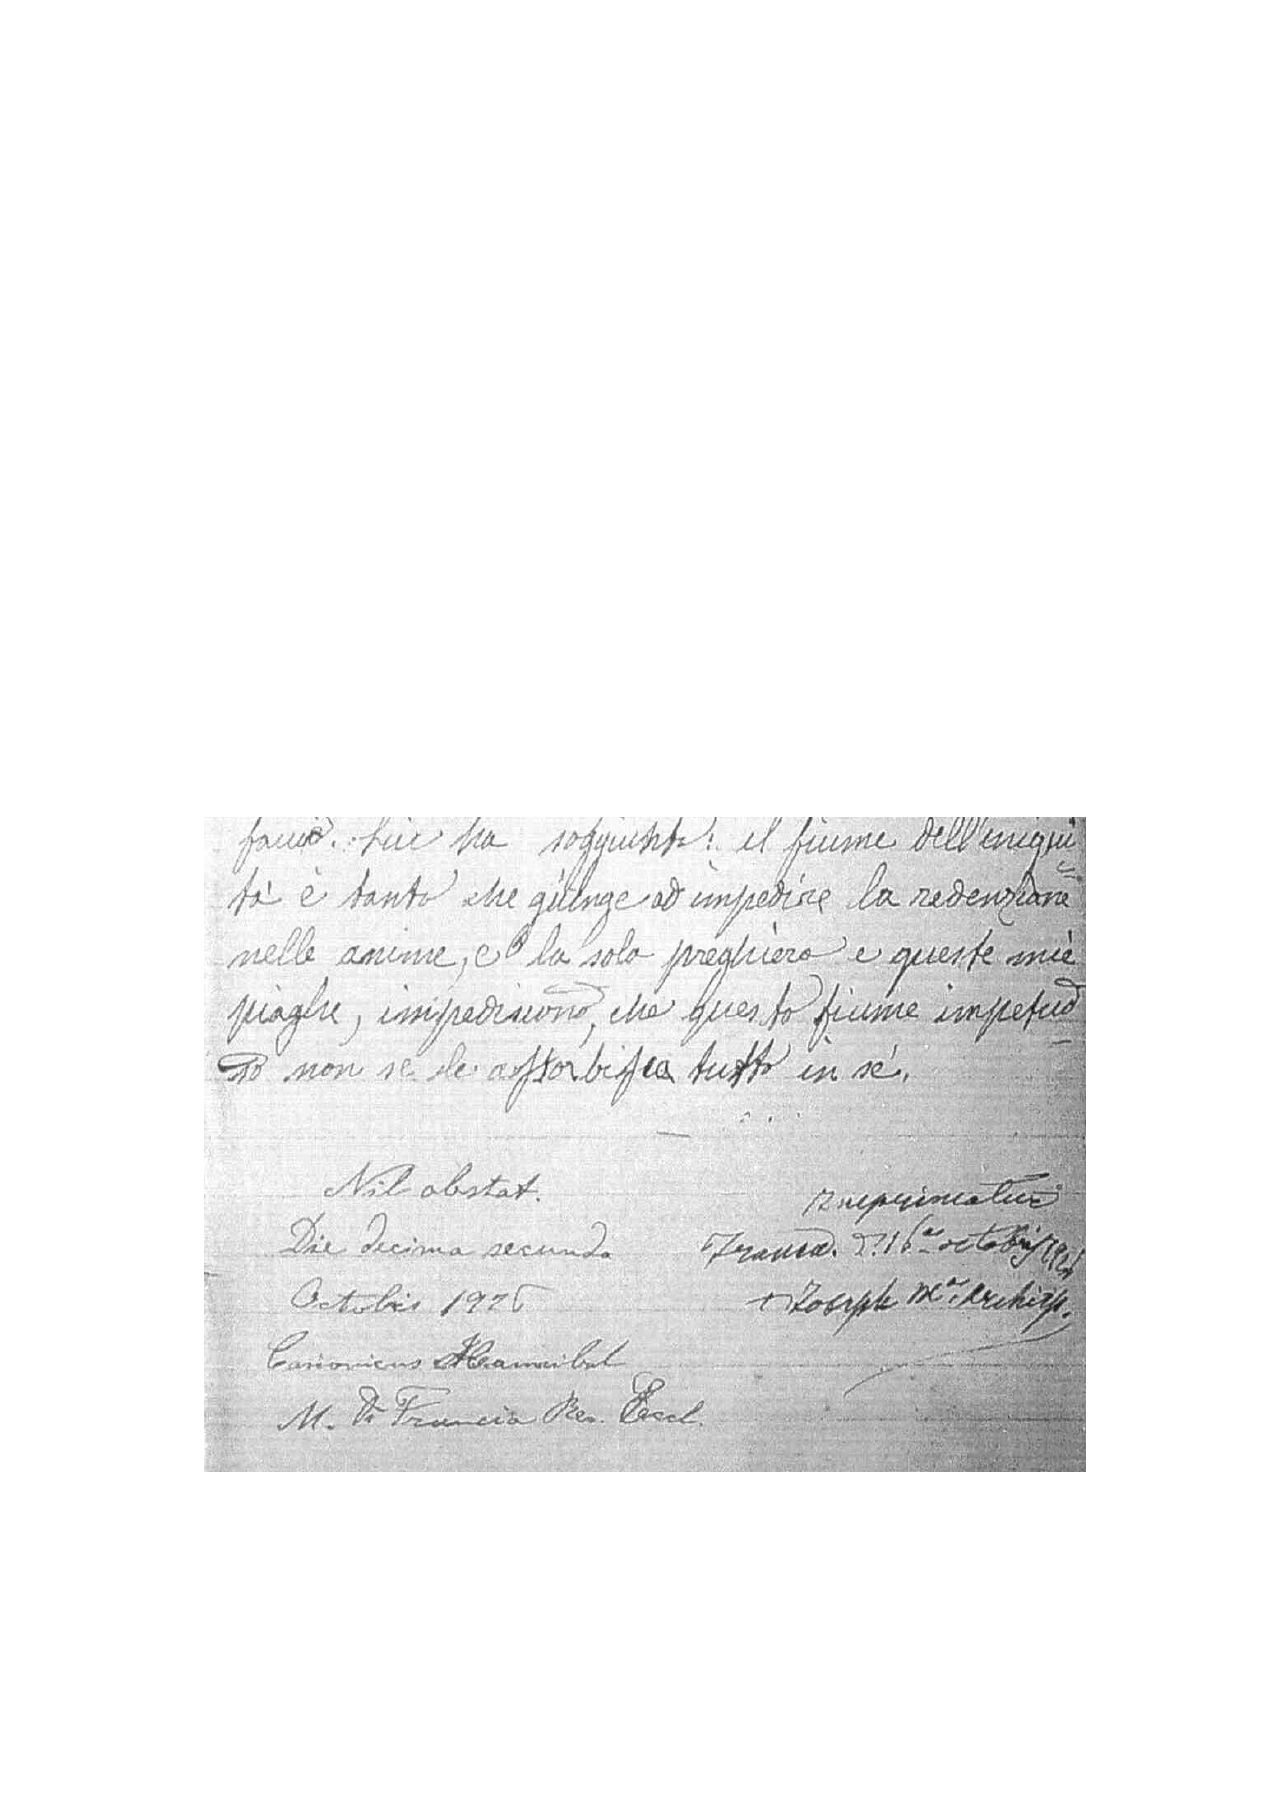 ha soggiunto: il fiume dell'iniqui
tà è tanto che giunge ad impedire la redenzione
nelle anime, e la sola preghiera e queste mie
piaghe, impediscono, che questo fiume impetuo
so non se le assorbisca tutto in sé.
Nil obstat.
Die decima secunda
Octobis 1926
Canonicus Hannibal
M. Di Francia Rev. Eccl.
Imprimatur
16 octobris 1926
+ Joseph Mª Archiep.